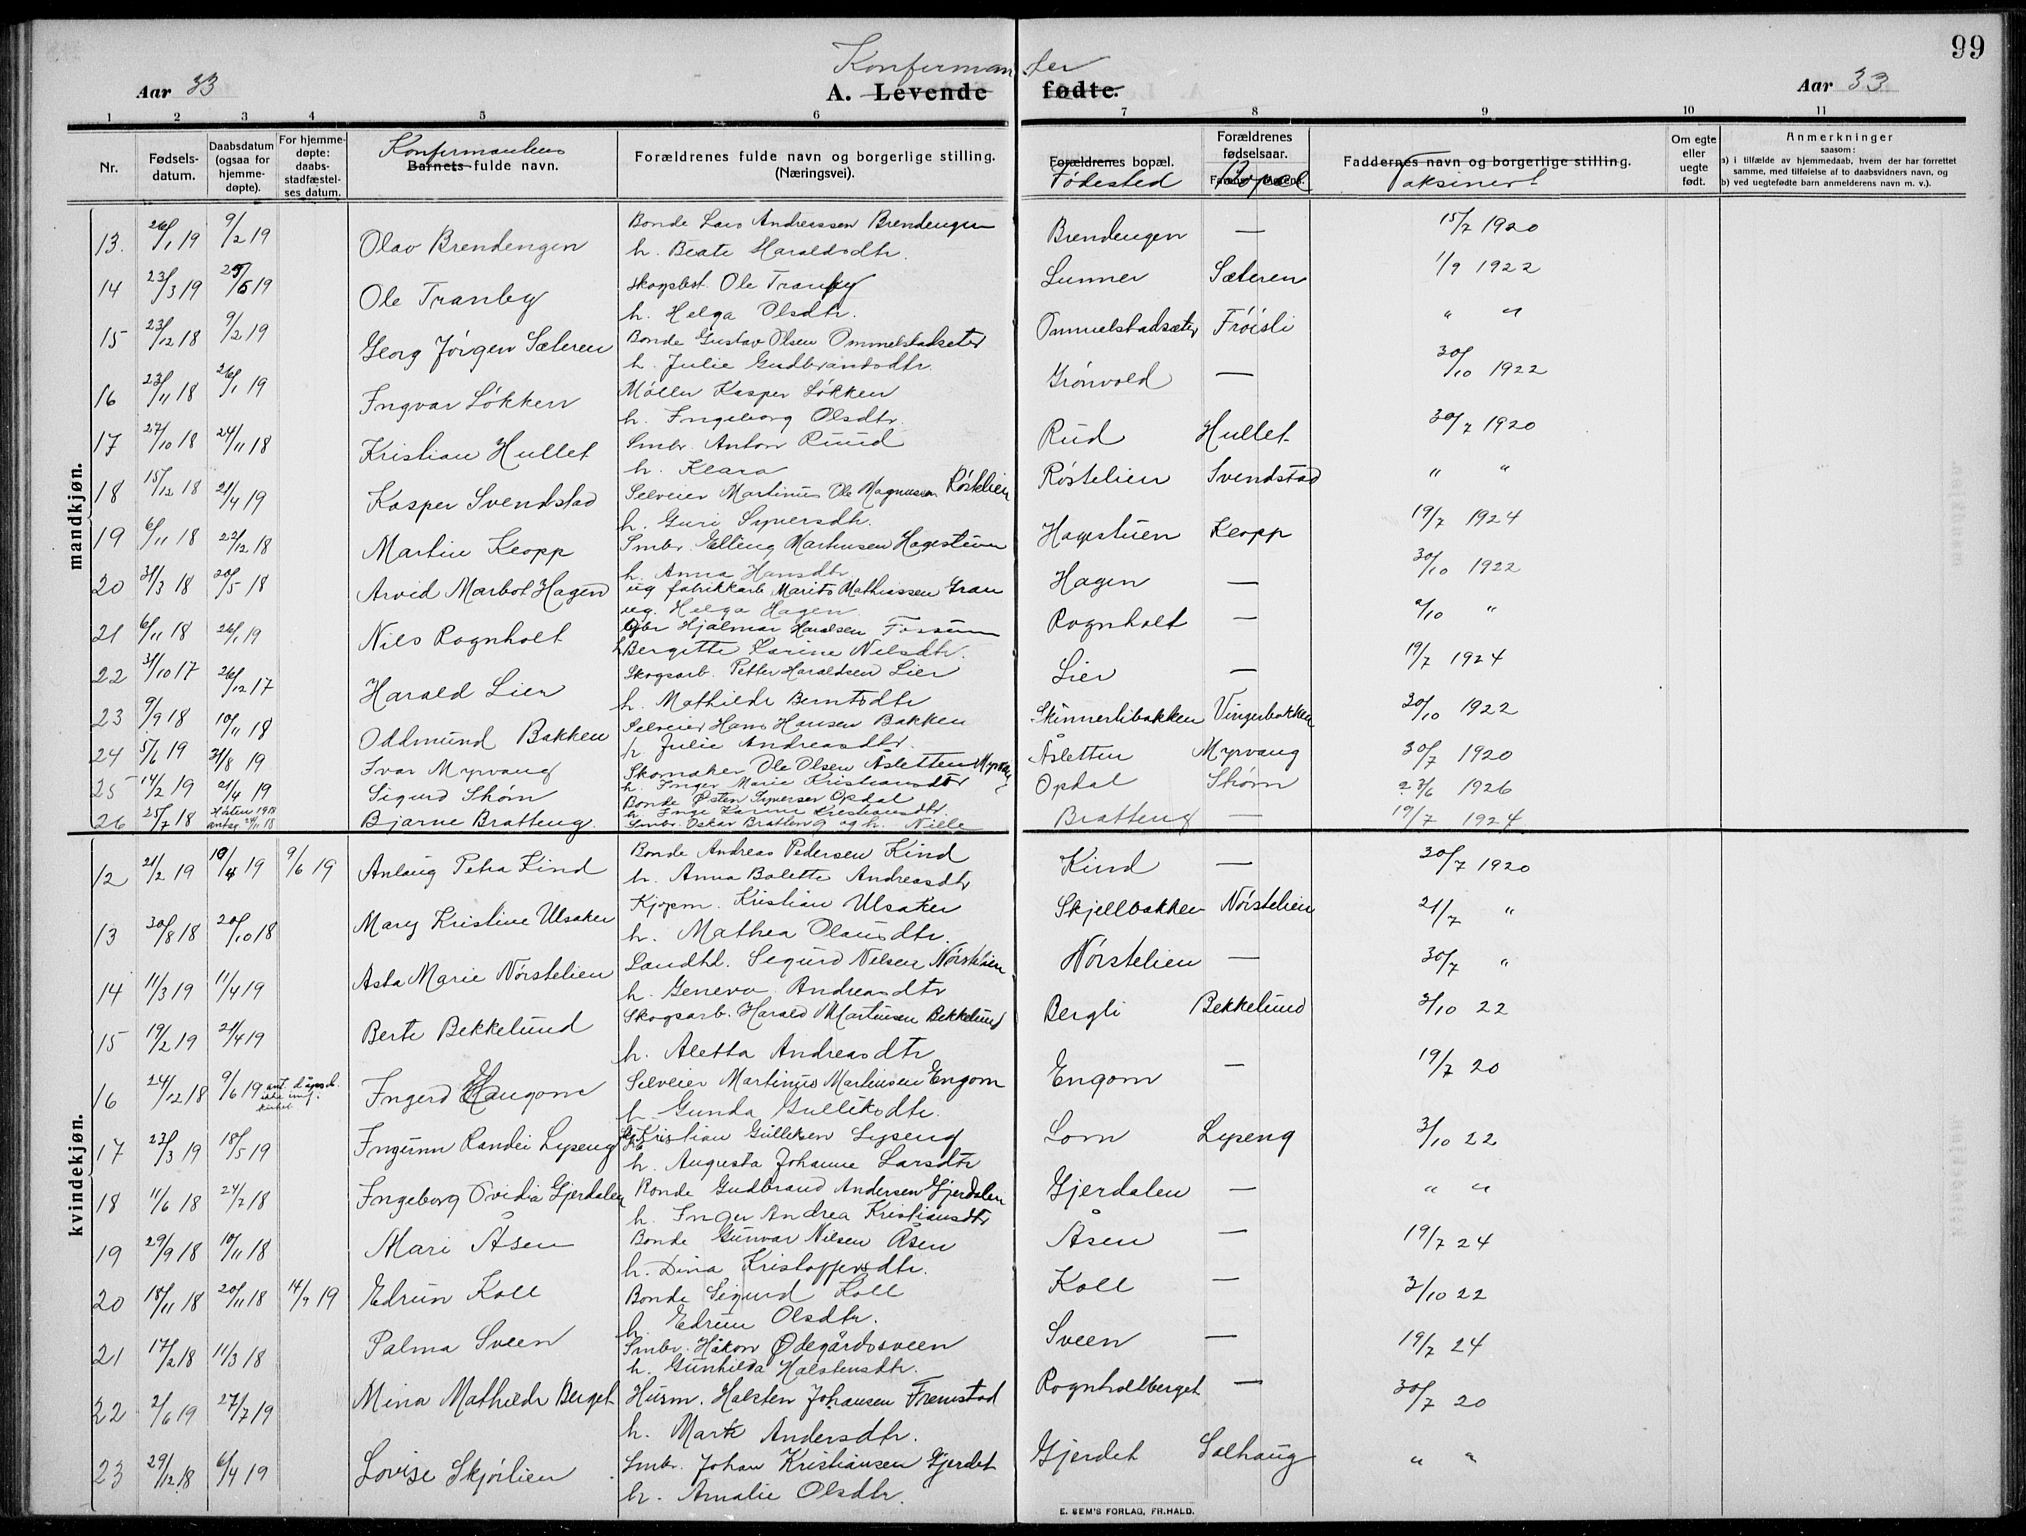 99
Konferman der
Aar 33 A. Levende fødte. Aar 33
1 2 3 4 5 6 7 8 9 10 11
Nr. Fødsels-datum. Daabsdatum (ogsaa for hjemme-døpte). For hjemme-døpte: daabs-stadfæstel-ses datum. Konfirmantens Barnets fulde navn. Forældrenes fulde navn og borgerlige stilling. (Næringsvei). Forældrenes bopæl. Fødested Forældrenes fødselsaar. Bopæl Faddernes navn og borgerlige stilling. Vaksinert Om egte eller uegte født. Anmerkninger saasom: a) i tilfælde av hjemmedaab, hvem der har forrettet samme, med tilføielse af to daabsvidners navn, og b) ved uegtefødte barn anmelderens navn m. v.).
mandkjøn.
13. 26/1 19 9/2 19 Olav Brendengen Bonde Lars Andreassen Brendengen Brendengen — 15/7 1920
h. Beate Haraldsdtr.
14 23/3 19 25/5 19 Ole Tranby Skogsbst. Ole Tranby Lunner Sæteren 1/9 1922
h. Helga Olsdtr.
15 23/12 18 9/2 19 Georg Jørgen Sæteren Bonde Gustav Olsen Ommelstadseter Ommelstadsæter Frøisli " "
h. Julie Gudbrandsdtr.
16 23/11 18 26/1 19 Ingvar Løkken Møller Kasper Løkken Grønvold — 30/10 1922
h. Ingeborg Olsdtr.
17 27/10 18 24/11 18 Kristian Hullet Smbr. Anton Ruud Rud Hullet 30/7 1920
h. Klara
18 15/12 18 21/4 19 Kasper Svendstad Selveier Martinus Ole Magnussen Røstelien Røstelien Svendstad " "
h. Guri Syversdtr.
19 6/11 18 22/12 18 Martin Kropp Smbr. Elling Martinsen Hagestuen Hagestuen Kropp 19/7 1924
h. Anna Hansdtr
20 31/3 18 20/5 18 Arvid Marbot Hagen ug fabrikkarb Marits Mathiassen Gran Hagen — 30/10 1922
ug. Helga Hagen
21 6/11 18 26/1 19 Nils Rognholt Hjalmar Haralsen Fossum Rognholt — 2/10 "
h Bergitte Karine Nilsdtr.
22 31/10 17 26/12 17 Harald Lier Skogsarb. Petter Haraldsen Lier Lier — 19/7 1924
h. Mathilde Berntsdtr
23 9/9 18 10/11 18 Oddmund Bakken Selveier Hans Hansen Bakken Skinnerlibakken Vingerbakken 30/10 1922
h. Julie Andreasdtr.
24 5/6 19 31/8 19 Ivar Myrvang Skomaker Ole Olsen Åsletten Myrvang Åsletten Myrvang 30/7 1920
h. Inger Marie Kristiansdtr
25 14/2 19 21/4 19 Sigurd Skøin Bonde Østen Syversen Opdal Opdal Skøin 23/6 1926
h. Inge Karine Kristiansdtr.
26 25/7 18 Høsten 1918 antag. 24/11 18 Bjarne Bratteng. Smbr. Oskar Bratteng og h. Nielle Bratteng — 19/7 1924
kvindekjøn.
12 21/2 19 19/4 19 9/6 19 Anlaug Petra Kind Bonde Andreas Pedersen Kind Kind — 30/7 1920
h. Anna Bolette Andreasdtr
13 30/8 18 20/10 18 Mary Kristine Ulsaker Kjøpm. Kristian Ulsaker Skjellbakken Nørstelien 21/7 "
h. Mathea Olausdtr.
14 11/3 19 11/4 19 Asta Marie Nørstelien Landhl. Sigurd Nilsen Nørstelien Nørstelien — 30/7 "
h. Geneva Andreasdtr
15 19/2 19 21/4 19 Berte Bekkelund Skogsarb. Harald Martinsen Bekkelund Bergli Bekkelund 3/10 22
h. Aletta Andreasdtr
16 24/12 18 9/6 19 Ingerd Haugom Selveier Martinus Martinsen Engom Engom — 19/7 20
h Gunda Gulliksdtr.
17 23/3 19 18/5 19 Ingunn Randei Lyseng Kristian Gulliksen Lyseng Lom Lyseng 3/10 22
h. Augusta Johanne Larsdtr
18 11/6 18 24/7 18 Ingeborg Ovidia Gjerdalen Bonde Gudbrand Andersen Gjerdalen Gjerdalen — " "
h. Inger Andrea Kristiansdtr
19 29/9 18 10/11 18 Mari Åsen Bonde Gunvar Nilsen Åsen Åsen — 19/7 24
h. Dina Kristoffersdtr.
20 18/11 18 20/11 18 14/9 19 Edrun Koll Bonde Sigurd Koll Koll — 3/10 22
h Edrun Olsdtr.
21 17/2 18 11/3 18 Palma Sveen Smbr. Håkon Ødegårdsveen Sveen — 19/7 24
h. Gunhilda Halstensdtr.
22 2/6 19 27/7 19 Mina Mathilde Berget Husm. Halsten Johansen Fremstad Rognholtberget — 30/7 20
h. Marte Andersdtr.
23 29/12 18 6/4 19 Lovise Skjøilien Smbr. Johan Kristiansen Gjerdet Gjerdet Solhaug " "
h. Amalie Olsdtr.
E. SEM'S FORLAG, FR.HALD.